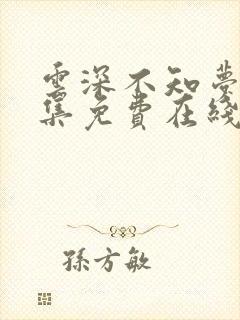 雲深不知夢
集免費在綫
孫方敏